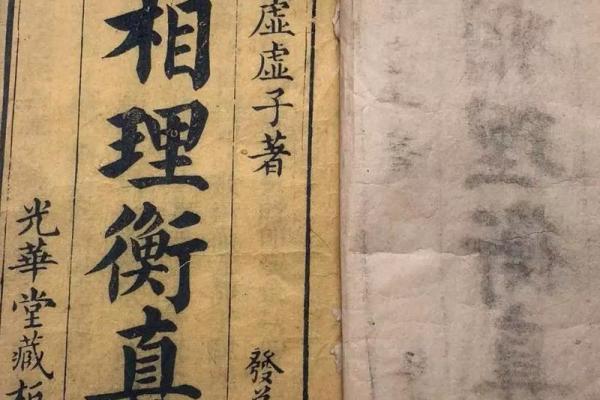 虛虛子著 發
相理衡真
光華堂藏